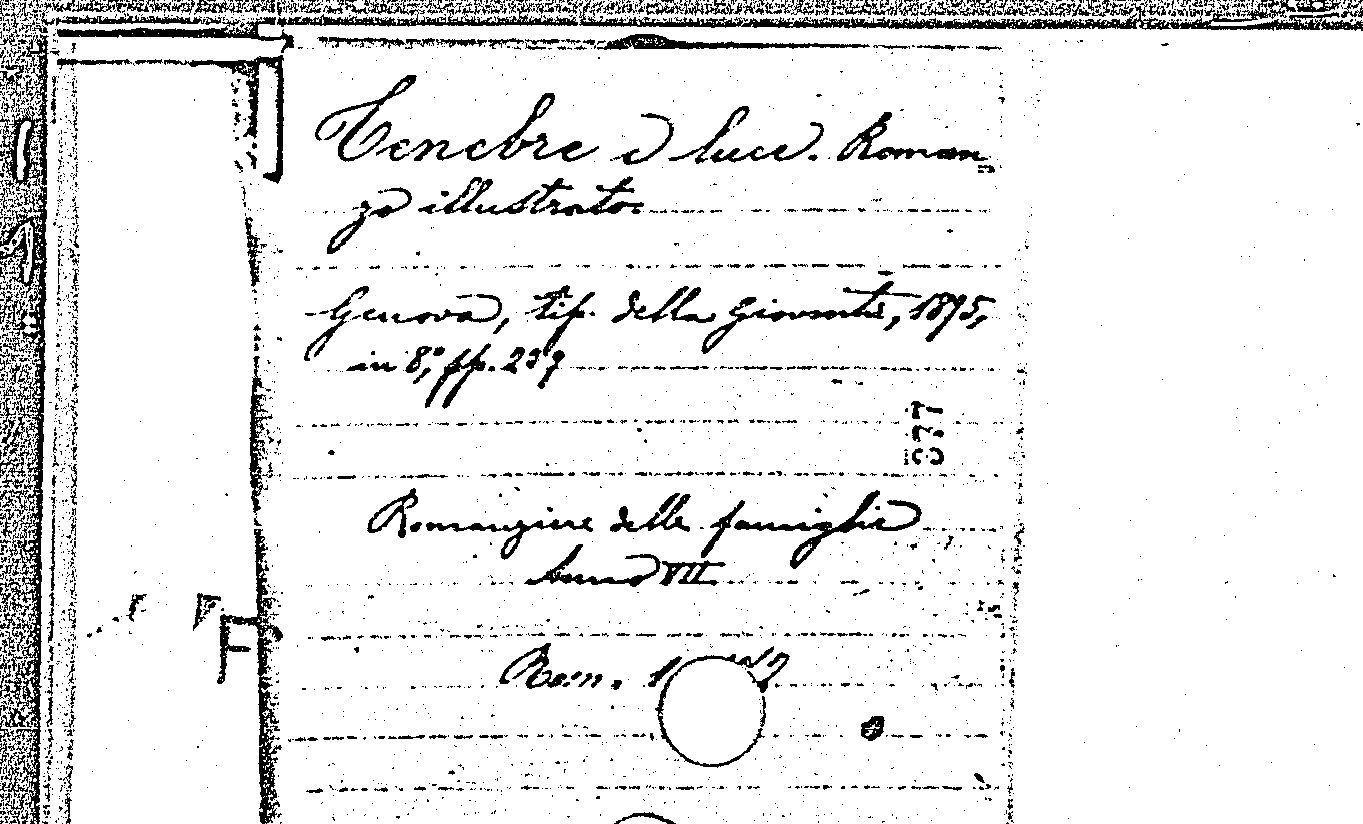 Tenebre e luce. Roman=
zo illustrato.
Genova, tip. della Gioventù, 1895,
in 8°, pp. 237
877
Romanziere delle famiglie
Anno VII
Rom.